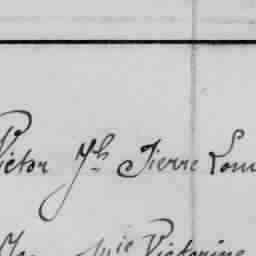 Victor Jh Pierre Lou
Mie Victorine